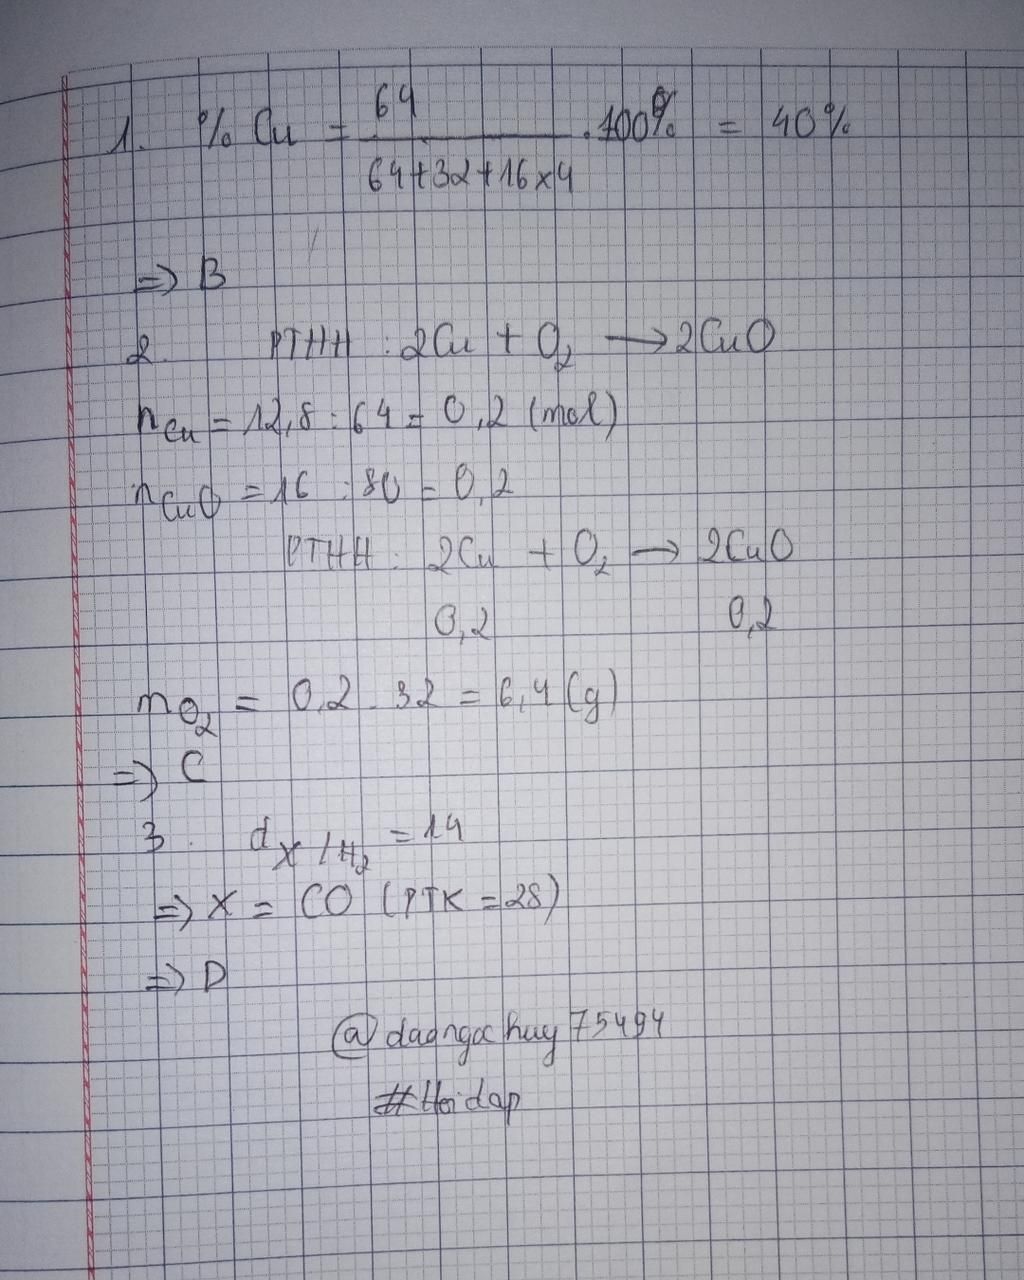 1. % Cu = 64 / 64+32+16x4 . 100% = 40%
=> B
2. PTHH : 2Cu + O2 → 2CuO
nCu = 12,8 : 64 = 0,2 (mol)
nCuO = 16 : 80 = 0,2
PTHH : 2Cu + O2 → 2CuO
0,2 0,2
mO2 = 0,2 . 32 = 6,4 (g)
=> C
3. dX/H2 = 14
=> X = CO (PTK = 28)
=> D
@daongochuy75494
#Hoidap